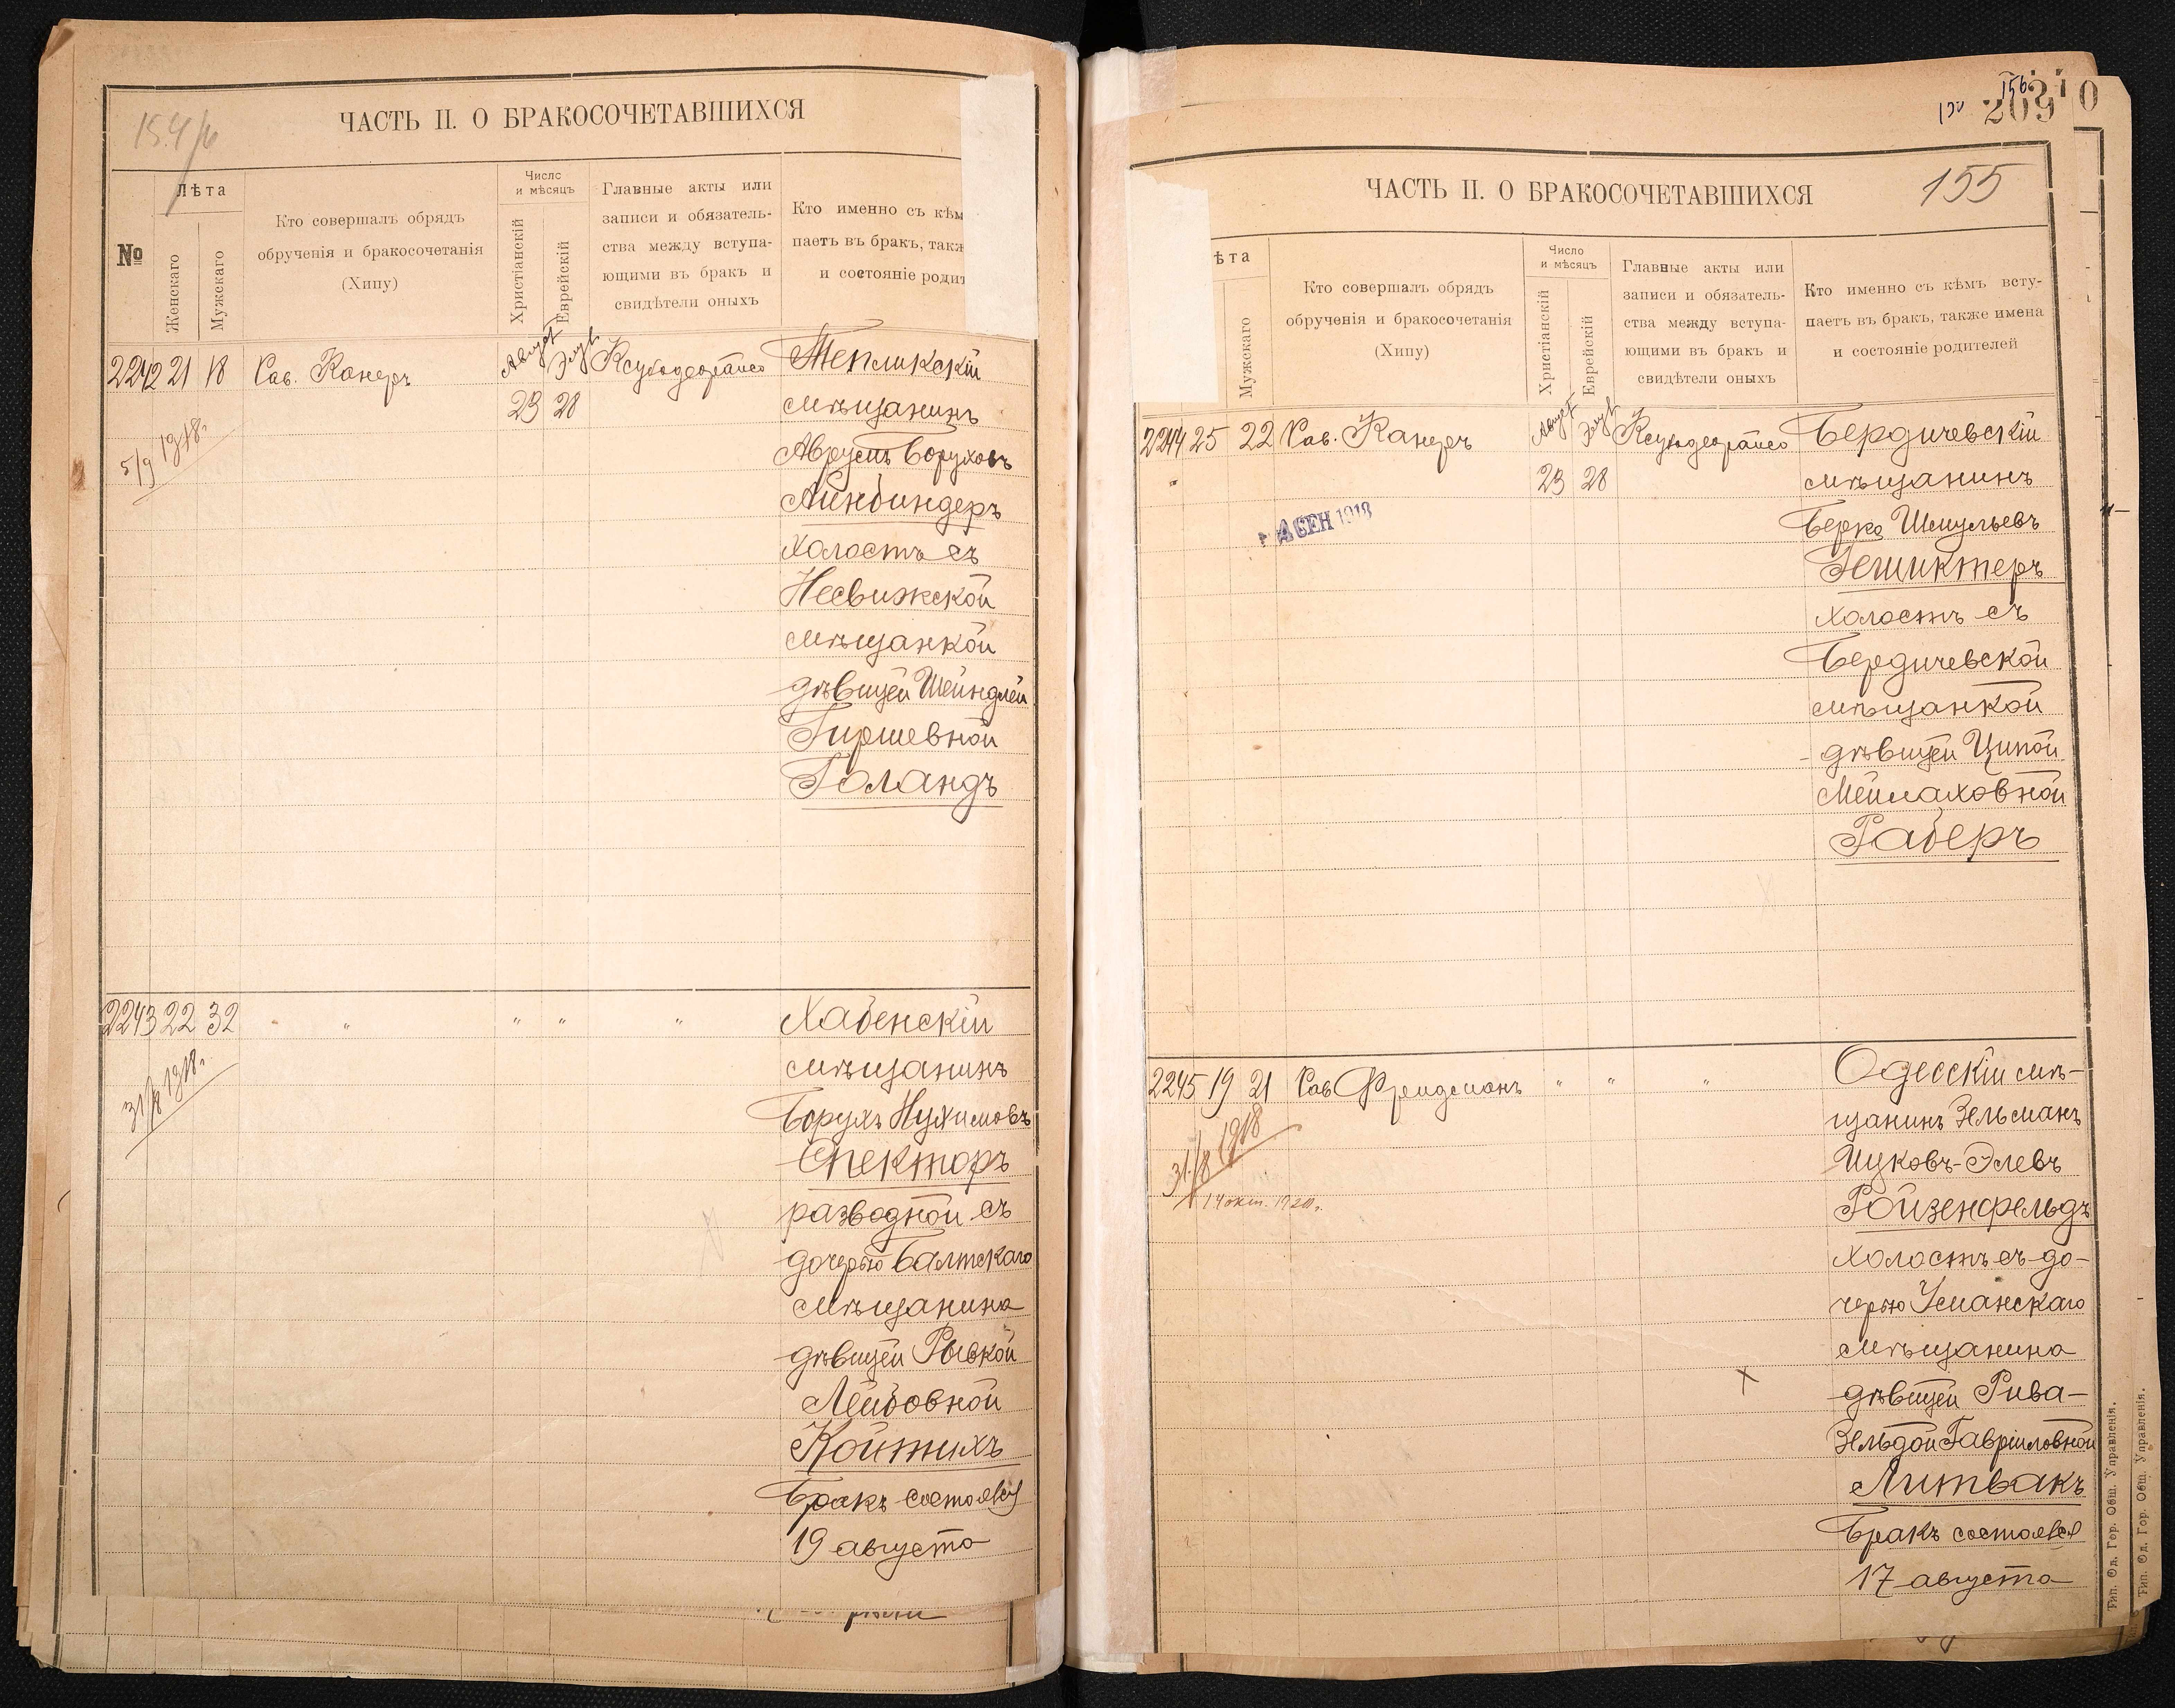 154/б
ЧАСТЬ II. О БРАКОСОЧЕТАВШИХСЯ
№
Лѣта
Женскаго
Мужскаго
Кто совершалъ обрядъ
обрученія и бракосочетанія
(Хипу)
Число
и мѣсяцъ
Христіанскій
Еврейскій
Главные акты или
записи и обязатель-
ства между вступа-
ющими въ бракъ и
свидѣтели оныхъ
Кто именно съ кѣм
паетъ въ бракъ, такж
и состояніе родит
2242 21 18 Рав. Канеръ Август Элул Ксубодеорайсо Тепликскій
23 28 мѣщанинъ
5/9 1918г. Аврумъ Боруховъ
Айнбиндеръ
холостъ съ
Несвижской
мѣщанкой
дѣвицей Шейндлей
Гиршевной
Голандъ
2243 22 32 " " " " Хабенскій
мѣщанинъ
31/8 1918г. Борухъ Нухимовъ
Спекторъ
разводной съ
дочерью Балтскаго
мѣщанина
дѣвицей Рывкой
Лейбовной
Койтихъ
Бракъ состоялся
19 августа
156
209
10
155
ЧАСТЬ II. О БРАКОСОЧЕТАВШИХСЯ
ѣта
Мужскаго
Кто совершалъ обрядъ
обрученія и бракосочетанія
(Хипу)
Число
и мѣсяцъ
Христіанскій
Еврейскій
Главные акты или
записи и обязатель-
ства между вступа-
ющими въ бракъ и
свидѣтели оныхъ
Кто именно съ кѣмъ всту-
паетъ въ бракъ, также имена
и состояніе родителей
2244 25 22 Рав. Канеръ Август Элул Ксубодеорайсо Бердичевскій
23 28 мѣщанинъ
4 СЕН 1918 Берко Шмульевъ
Гешиктеръ
холостъ съ
Бердичевской
мѣщанкой
дѣвицей Ципой
Мейлаховной
Раберъ
2245 19 21 Рав Фрейдманъ " " " Одесскій мѣ-
щанинъ Зельманъ
31/8 1918 Ицковъ-Элевъ
14 окт. 1920г. Ройзенфельдъ
холостъ съ до-
черью Уманскаго
мѣщанина
дѣвицей Рива-
Зельдой Гавріиловной
Литвакъ
Бракъ состоялся
17 августа
Тип. Од. Гор. Общ. Управленія.
Тип. Од. Гор. Общ. Управленія.